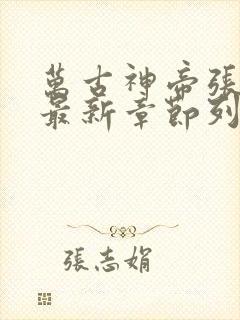 萬古神帝張
最新章節列
張志娟